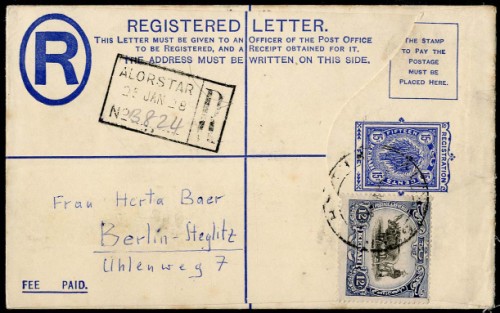 REGISTERED LETTER.
THIS LETTER MUST BE GIVEN TO AN OFFICER OF THE POST OFFICE
TO BE REGISTERED, AND A RECEIPT OBTAINED FOR IT.
THE ADDRESS MUST BE WRITTEN ON THIS SIDE.
R
THE STAMP
TO PAY THE
POSTAGE
MUST BE
PLACED HERE.
ALORSTAR
JAN
R
No B824
FIFTEEN
15
15
CENTS
REGISTRATION
Frau Herta Baer
Berlin-Steglitz
Uhlenweg 7
12
12
KEDAH
FEE PAID.